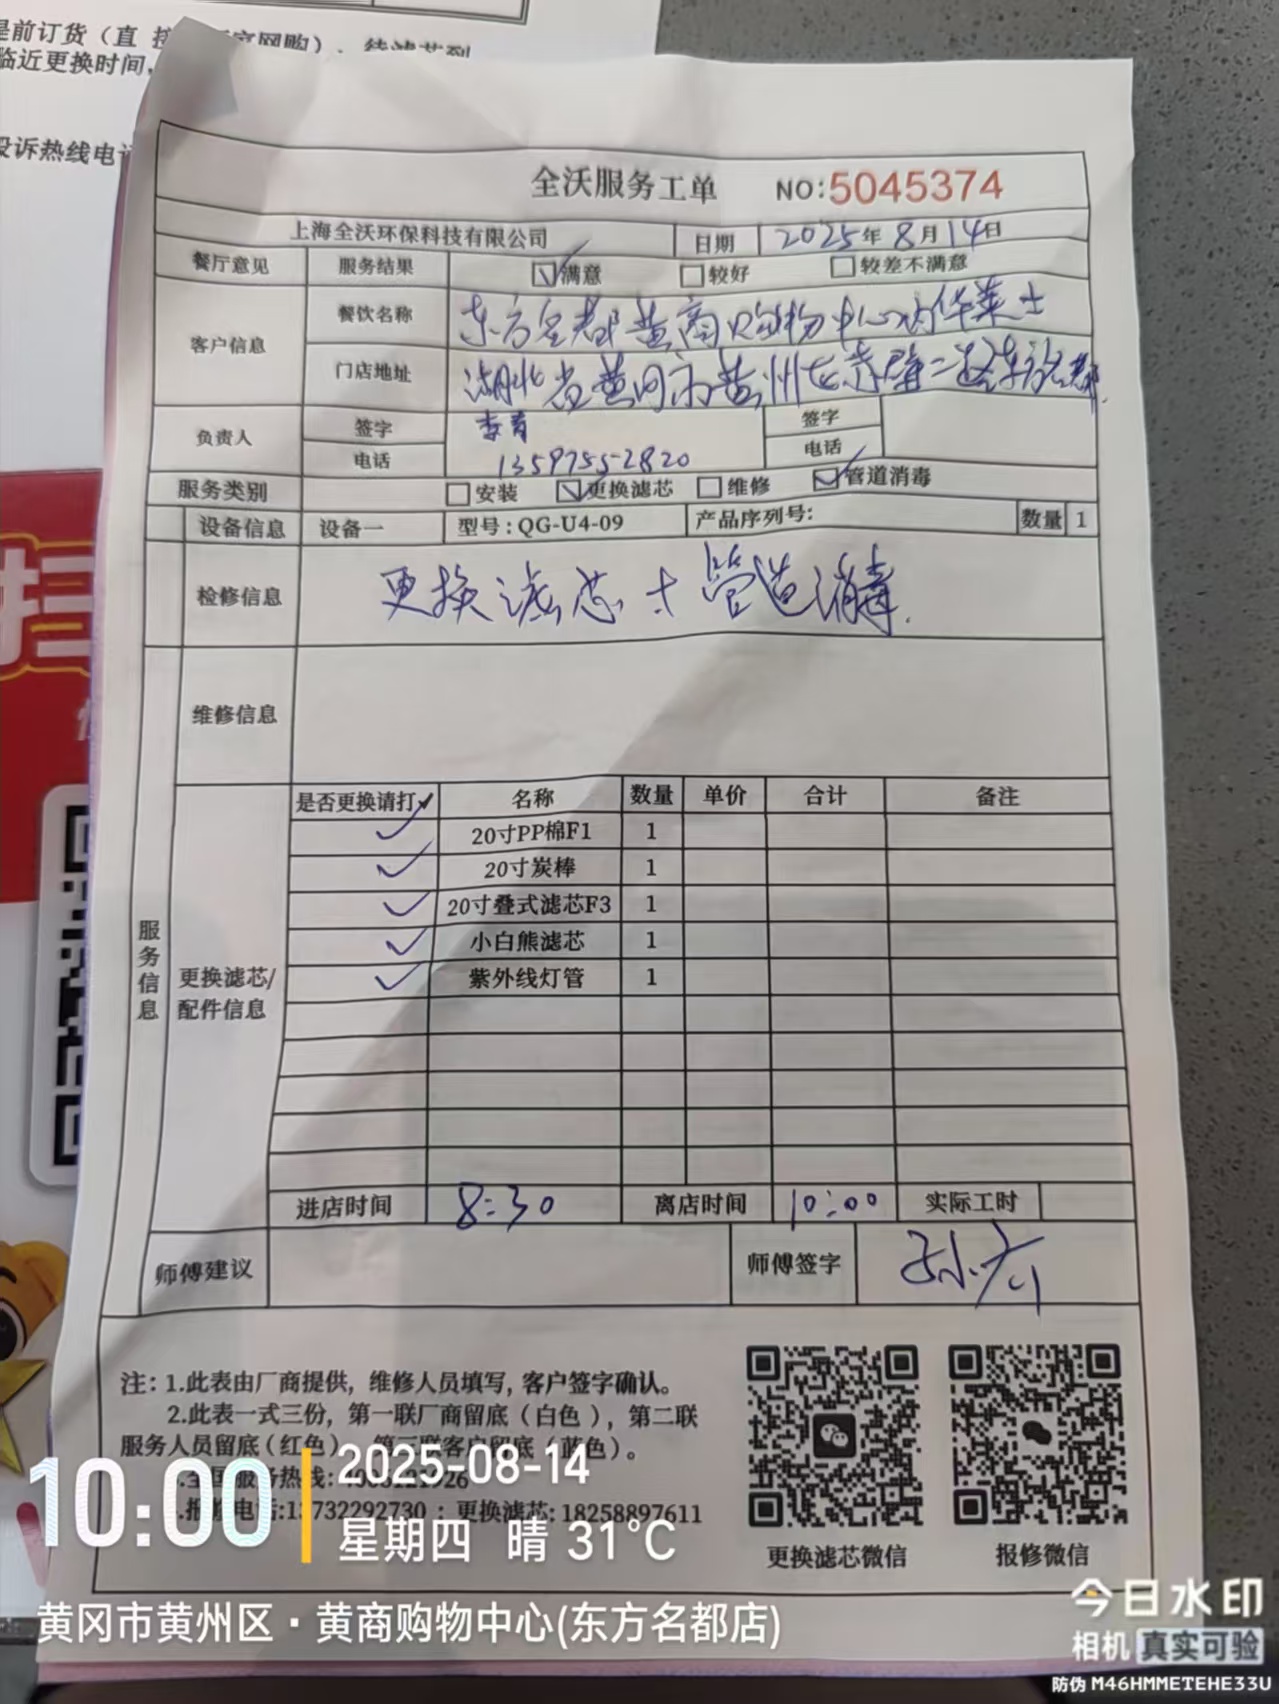 是前订货（直
临近更换时间，
投诉热线电话
全沃服务工单 NO:5045374
上海全沃环保科技有限公司 日期 2025年8月14日
餐厅意见 服务结果 ☑满意 □较好 □较差不满意
客户信息 餐饮名称 东方名都黄商购物中心内华莱士
门店地址 湖北省黄冈市黄州区赤壁二路东方名都
负责人 签字 李青 签字
电话 13597552820 电话
服务类别 □安装 ☑更换滤芯 □维修 ☑管道消毒
设备信息 设备一 型号：QG-U4-09 产品序列号： 数量 1
检修信息 更换滤芯+管道消毒.
维修信息
服务信息
更换滤芯/配件信息
是否更换请打✓ 名称 数量 单价 合计 备注
✓ 20寸PP棉F1 1
✓ 20寸炭棒 1
✓ 20寸叠式滤芯F3 1
✓ 小白熊滤芯 1
✓ 紫外线灯管 1
进店时间 8:30 离店时间 10:00 实际工时
师傅建议 师傅签字
注：1.此表由厂商提供，维修人员填写，客户签字确认。
2.此表一式三份，第一联厂商留底（白色），第二联
服务人员留底（红色），第三联客户留底（蓝色）。
全国服务热线：
报修电话:13732292730 ；更换滤芯:18258897611
更换滤芯微信 报修微信
10:00 2025-08-14
星期四 晴 31°C
黄冈市黄州区·黄商购物中心(东方名都店)
今日水印
相机 真实可验
防伪 M46HMMETEHE33U